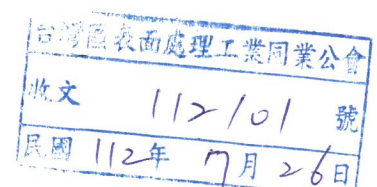 台灣區表面處理工業同業公會
收文 112101 號
民國 112年 7月 26日